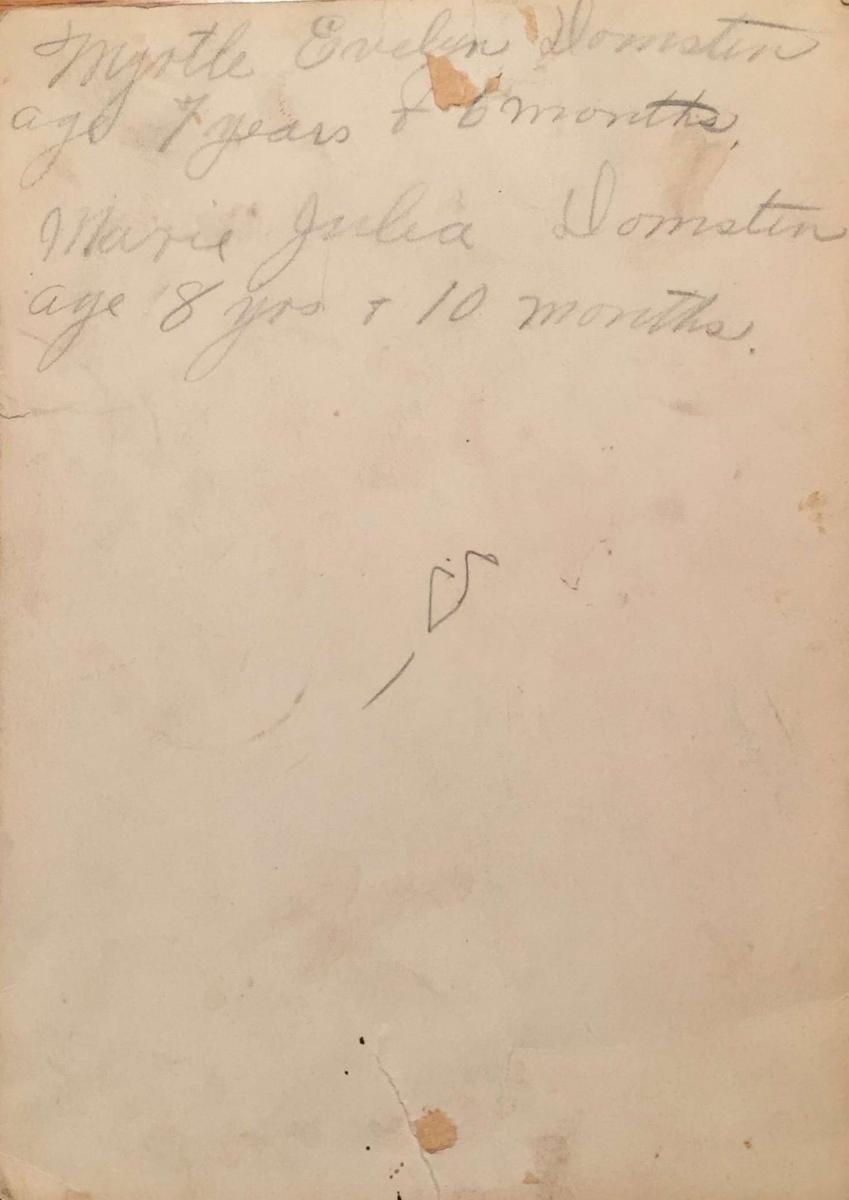 Myrtle Evelyn Domstin
age 7 years & 6 months.
Marie Julia Domstin
age 8 yrs + 10 months.